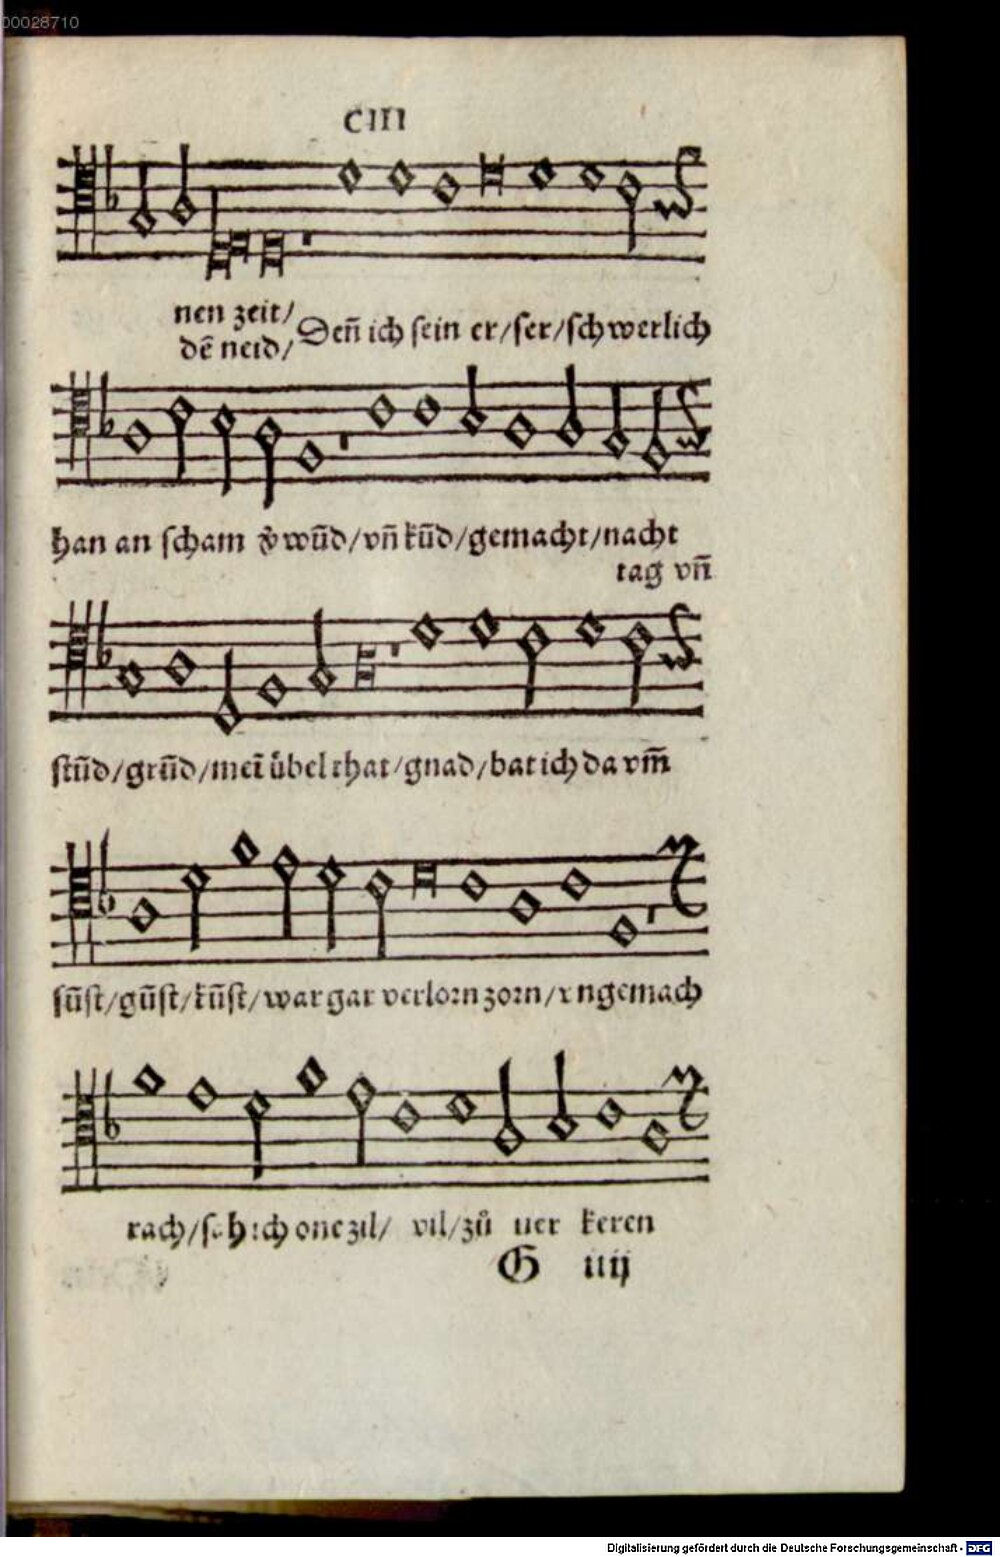 00028710
CIII
nen zeit/
dē neid/
Deñ ich sein er/ser/schwerlich
han an scham vͦ wūd/vñ kūd/gemacht/nacht
tag vñ
stūd/grūd/meī übel that/gnad/bat ich da vm̄
sūst/gūst/kūst/war gar verlorn zorn/vngemach
rach/seh ich one zil/ vil/zů uer keren
G iiij
Digitalisierung gefördert durch die Deutsche Forschungsgemeinschaft - DFG